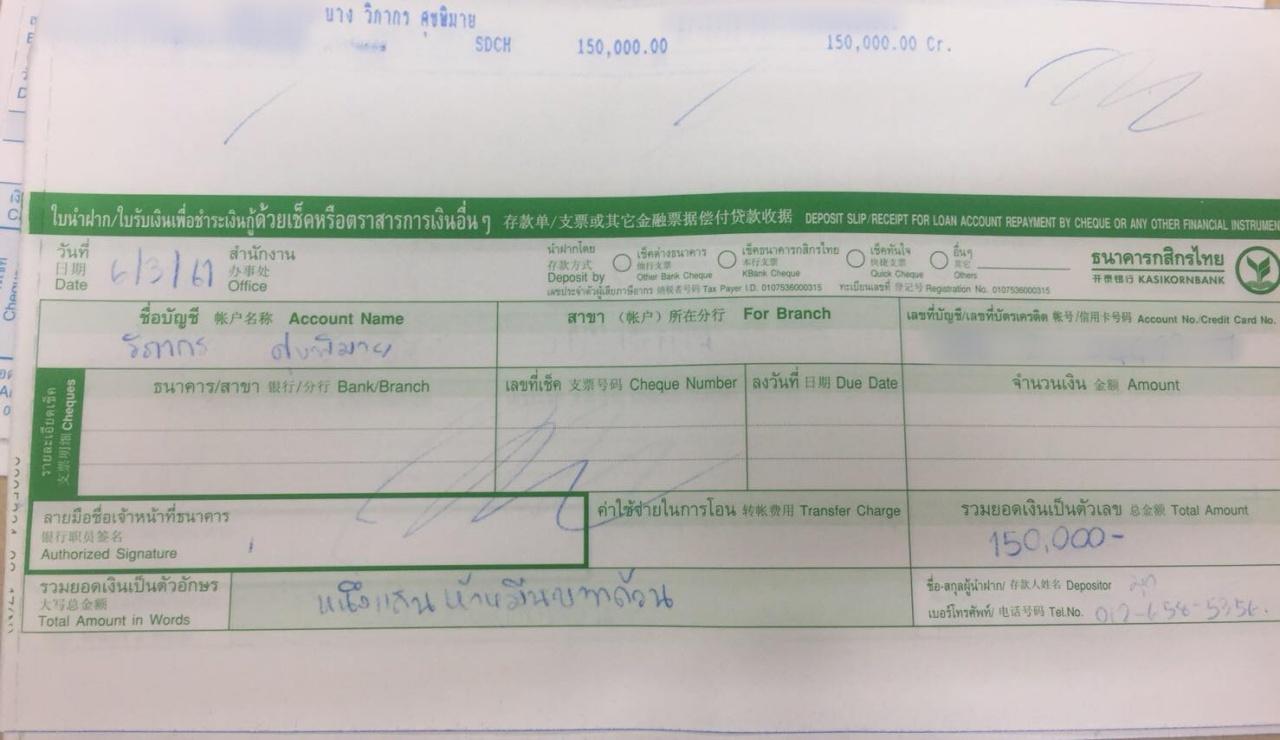 นาง วิภากร สุขพิมาย
SDCH 150,000.00 150,000.00 Cr.
ใบนำฝาก/ใบรับเงินเพื่อชำระเงินกู้ด้วยเช็คหรือตราสารการเงินอื่น ๆ 存款单/支票或其它金融票据偿付贷款收据 DEPOSIT SLIP/RECEIPT FOR LOAN ACCOUNT REPAYMENT BY CHEQUE OR ANY OTHER FINANCIAL INSTRUMEN
วันที่ 日期 Date 6/3/61
สำนักงาน 办事处 Office
นำฝากโดย 存款方式 Deposit by
เช็คต่างธนาคาร 他行支票 Other Bank Cheque
เช็คธนาคารกสิกรไทย 本行支票 KBank Cheque
เช็คทันใจ 快捷支票 Quick Cheque
อื่นๆ 其它 Others
เลขประจำตัวผู้เสียภาษีอากร 纳税者号码 Tax Payer I.D. 0107536000315 ทะเบียนเลขที่ 登记号 Registration No. 0107536000315
ธนาคารกสิกรไทย
开泰银行 KASIKORNBANK
ชื่อบัญชี 帐户名称 Account Name
วิภากร สุขพิมาย
สาขา (帐户) 所在分行 For Branch
เลขที่บัญชี/เลขที่บัตรเครดิต 帐号/信用卡号码 Account No./Credit Card No.
รายละเอียดเช็ค
支票明细 Cheques
ธนาคาร/สาขา 银行/分行 Bank/Branch
เลขที่เช็ค 支票号码 Cheque Number
ลงวันที่ 日期 Due Date
จำนวนเงิน 金额 Amount
ลายมือชื่อเจ้าหน้าที่ธนาคาร
银行职员签名
Authorized Signature
ค่าใช้จ่ายในการโอน 转帐费用 Transfer Charge
รวมยอดเงินเป็นตัวเลข 总金额 Total Amount
150,000-
รวมยอดเงินเป็นตัวอักษร
大写总金额
Total Amount in Words
หนึ่งแสนห้าหมื่นบาทถ้วน
ชื่อ-สกุลผู้นำฝาก/ 存款人姓名 Depositor
เบอร์โทรศัพท์/ 电话号码 Tel.No.